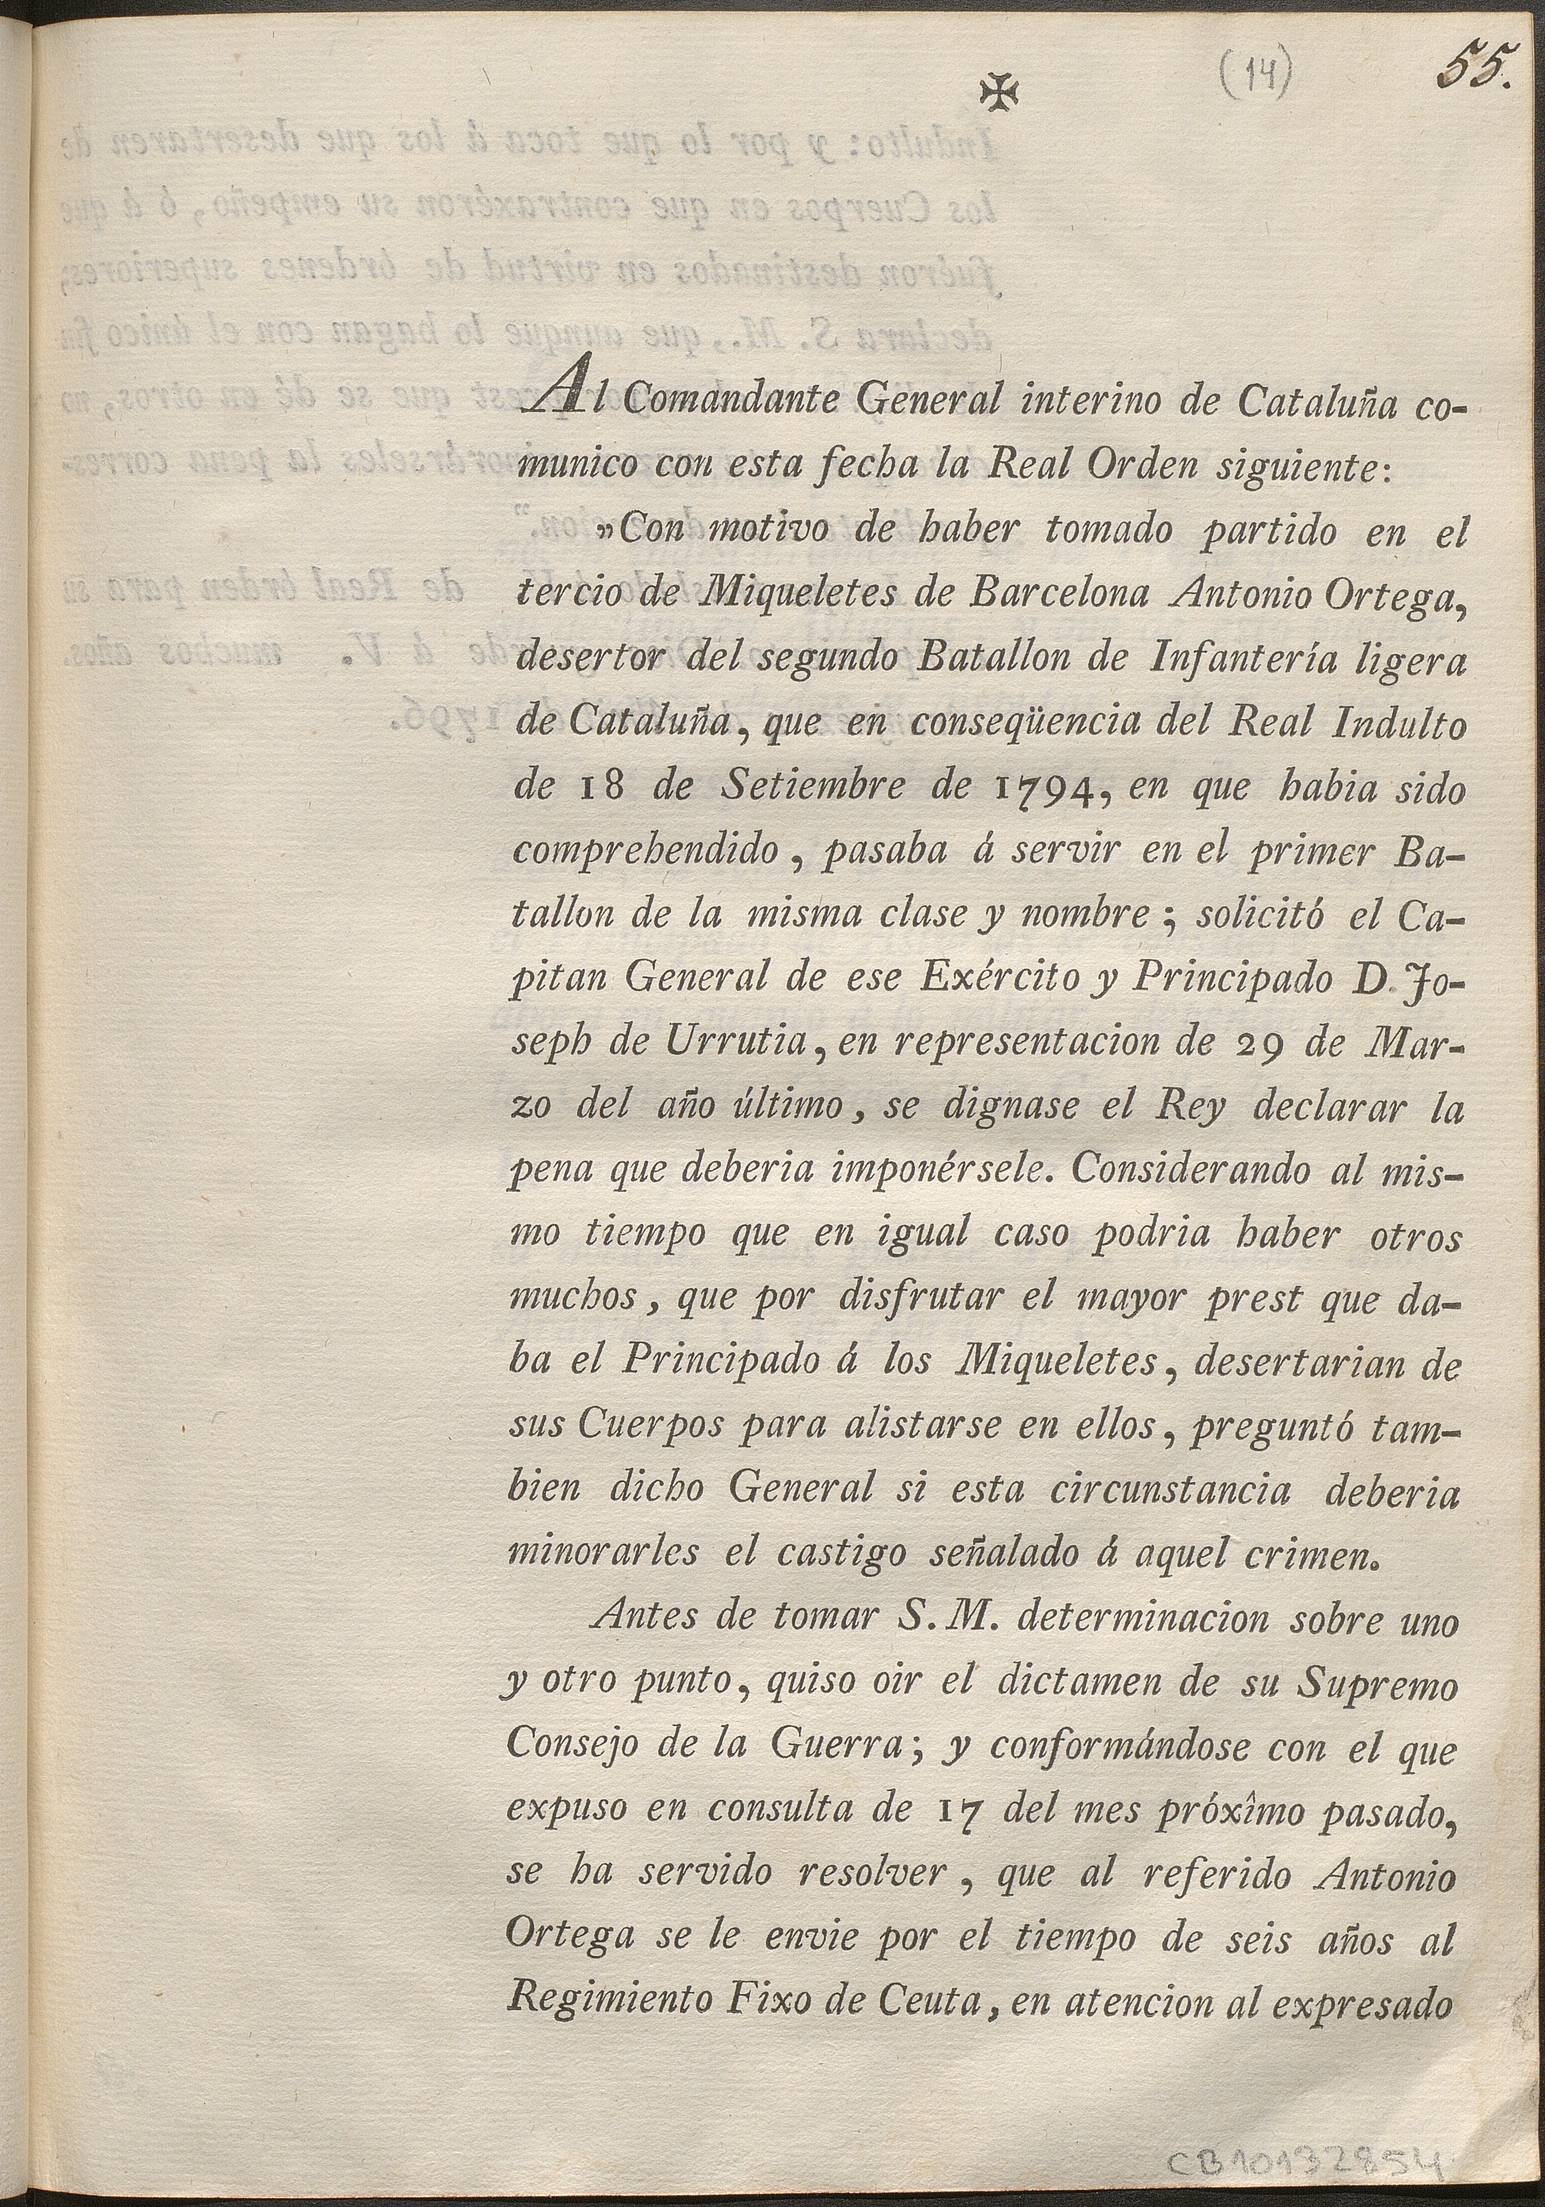 (14)
55.
✠
Al Comandante General interino de Cataluña co-
munico con esta fecha la Real Orden siguiente:
»Con motivo de haber tomado partido en el
tercio de Miqueletes de Barcelona Antonio Ortega,
desertor del segundo Batallon de Infantería ligera
de Cataluña, que en conseqüencia del Real Indulto
de 18 de Setiembre de 1794, en que habia sido
comprehendido, pasaba á servir en el primer Ba-
tallon de la misma clase y nombre; solicitó el Ca-
pitan General de ese Exército y Principado D. Jo-
seph de Urrutia, en representacion de 29 de Mar-
zo del año último, se dignase el Rey declarar la
pena que deberia imponérsele. Considerando al mis-
mo tiempo que en igual caso podria haber otros
muchos, que por disfrutar el mayor prest que da-
ba el Principado á los Miqueletes, desertarian de
sus Cuerpos para alistarse en ellos, preguntó tam-
bien dicho General si esta circunstancia deberia
minorarles el castigo señalado á aquel crimen.
Antes de tomar S. M. determinacion sobre uno
y otro punto, quiso oir el dictamen de su Supremo
Consejo de la Guerra; y conformándose con el que
expuso en consulta de 17 del mes próxîmo pasado,
se ha servido resolver, que al referido Antonio
Ortega se le envie por el tiempo de seis años al
Regimiento Fixo de Ceuta, en atencion al expresado
CB10132854